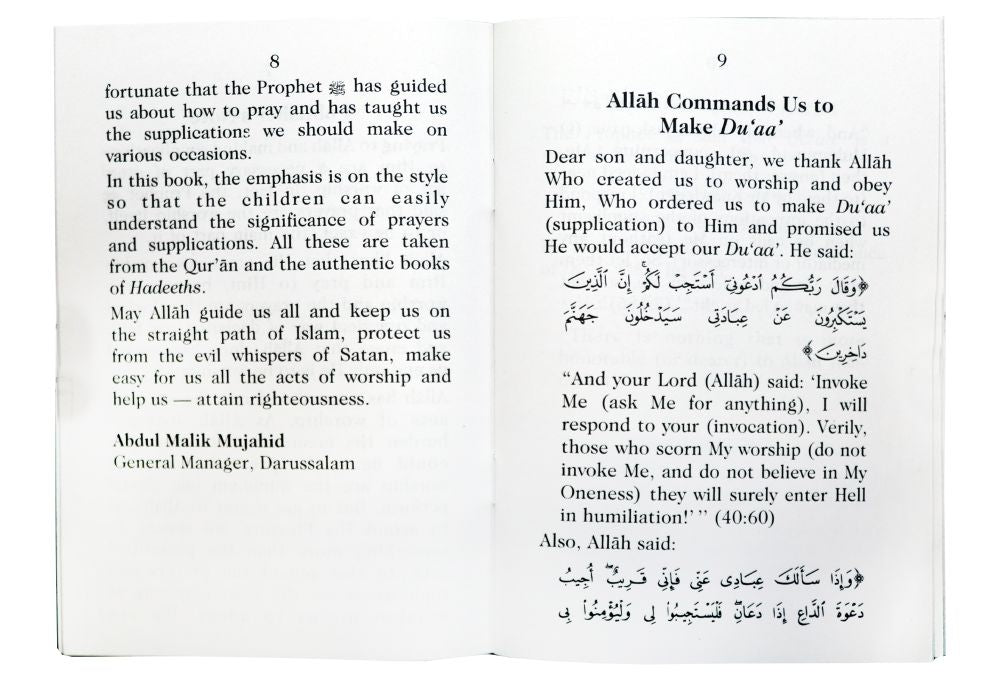 8
fortunate that the Prophet ﷺ has guided
us about how to pray and has taught us
the supplications we should make on
various occasions.
In this book, the emphasis is on the style
so that the children can easily
understand the significance of prayers
and supplications. All these are taken
from the Qur’ān and the authentic books
of Hadeeths.
May Allāh guide us all and keep us on
the straight path of Islam, protect us
from the evil whispers of Satan, make
easy for us all the acts of worship and
help us — attain righteousness.
Abdul Malik Mujahid
General Manager, Darussalam
9
Allāh Commands Us to
Make Du‘aa’
Dear son and daughter, we thank Allāh
Who created us to worship and obey
Him, Who ordered us to make Du‘aa’
(supplication) to Him and promised us
He would accept our Du‘aa’. He said:
﴿وَقَالَ رَبُّكُمُ ٱدْعُونِىٓ أَسْتَجِبْ لَكُمْ ۚ إِنَّ ٱلَّذِينَ
يَسْتَكْبِرُونَ عَنْ عِبَادَتِى سَيَدْخُلُونَ جَهَنَّمَ
دَاخِرِينَ﴾
“And your Lord (Allāh) said: ‘Invoke
Me (ask Me for anything), I will
respond to your (invocation). Verily,
those who scorn My worship (do not
invoke Me, and do not believe in My
Oneness) they will surely enter Hell
in humiliation!’ ” (40:60)
Also, Allāh said:
﴿وَإِذَا سَأَلَكَ عِبَادِى عَنِّى فَإِنِّى قَرِيبٌ ۖ أُجِيبُ
دَعْوَةَ ٱلدَّاعِ إِذَا دَعَانِ ۖ فَلْيَسْتَجِيبُوا۟ لِى وَلْيُؤْمِنُوا۟ بِى